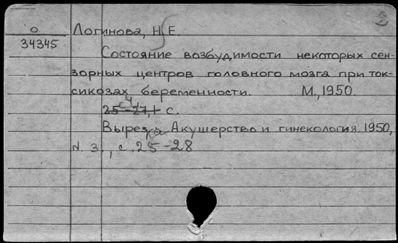 О
34345
Логинова, Н.Е.
Состояние возбудимости некоторых сен-
зорных центров головного мозга при ток-
сикозах беременности. М., 1950.
с.
Вырезка Акушерство и гинекология. 1950,
N. 3, с. 25-28